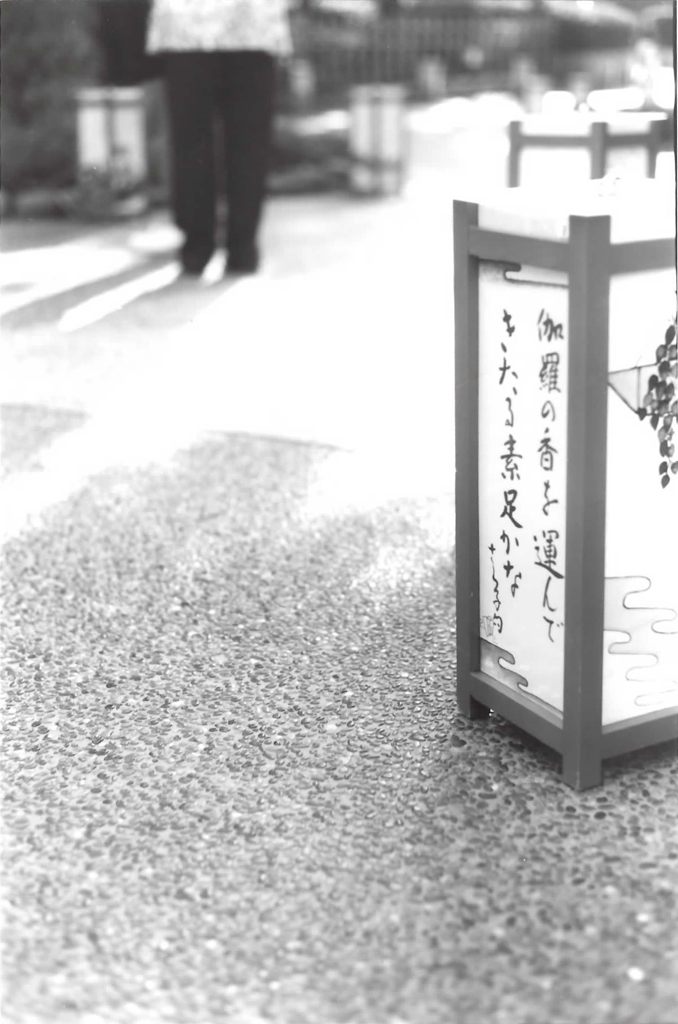 伽羅の香を運んで
きたる素足かな